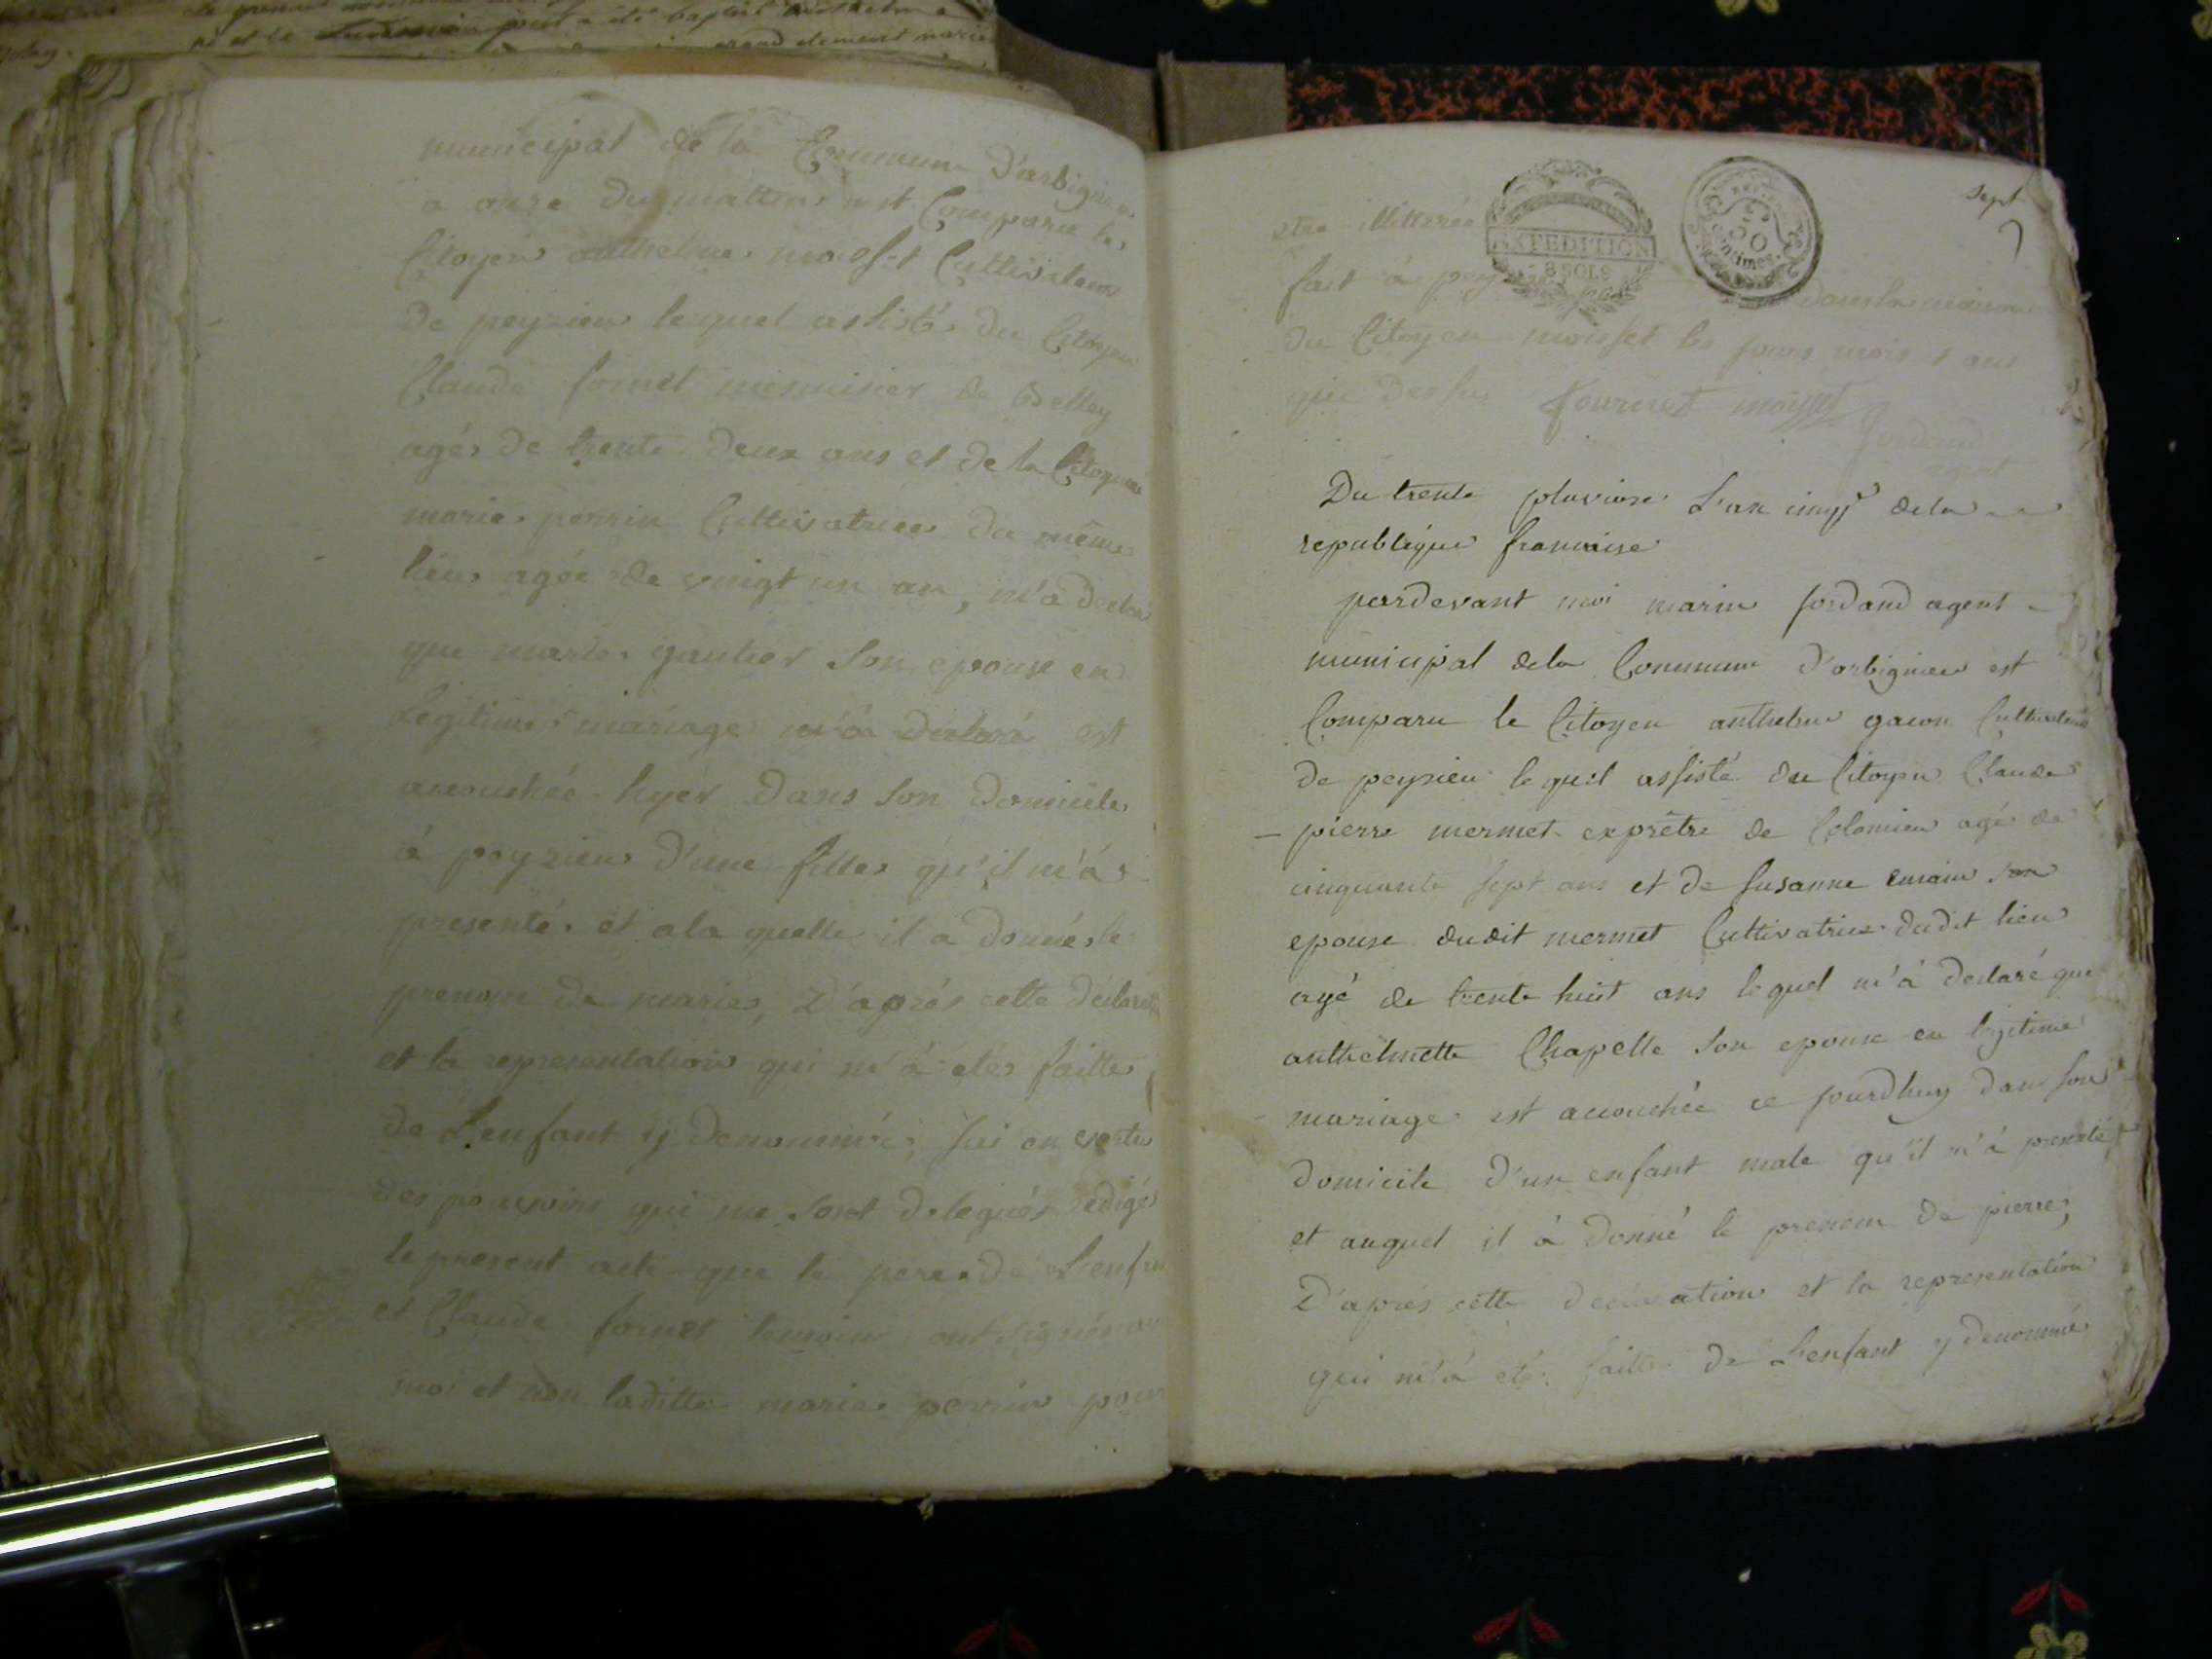 municipal de la Commune D'arbignieu
a onze du mattin est Comparu le
Citoyen anthelme moisset Cultivateur
De peyzieu lequel assisté du Citoyen
Claude fornet menuisier de Belley
agé De trente Deux ans et de la Citoyenne
marie perrin Cultivatrice du même
lieu agée de vingt un an, m'a declaré
que marie gautier Son epouse en
Legitime mariage m'a declaré est
accouchée hyer Dans Son Domicile
à peyzieu D'une fille qu'il m'à
presenté et a la quelle il a Donné le
prenom De marie, D'après cette declaration
et la representation qui m'à eté faitte
de L'enfant y Denommé; j'ai en vertu
des pouvoirs qui me Sont delegués redigé
le present acte que le pere De L'enfant
et Claude fornet temoins ont signés avec
moi et non laditte marie perrin pour
sept
7
etre illitterée
EXPEDITION
8 SOLS
50
Centimes
fait à dans la maison
du Citoyen moisset les jours mois et ans
que Dessus fournet moisset
agent
Du trente pluviose L'an cinq de la
republique francaise
pardevant moi marin jordand agent
municipal de la Commune D'arbignieu est
Comparu le Citoyen anthelme gacon Cultivateur
De peyzieu lequel assisté du Citoyen Claude
pierre mermet exprêtre de Colomieu agé de
cinquante sept ans et de Susanne son
epouse dudit mermet Cultivatrice dudit lieu
agé de trente huit ans lequel m'à declaré que
anthelmette Chapelle Son epouse en legitime
mariage est accouchée ce jourdhuy dans son
Domicile D'un enfant male qu'il m'à presenté
et auquel il à Donné le prenom De pierre,
D'après cette declaration et la representation
qui m'à eté faitte De L'enfant y denommé